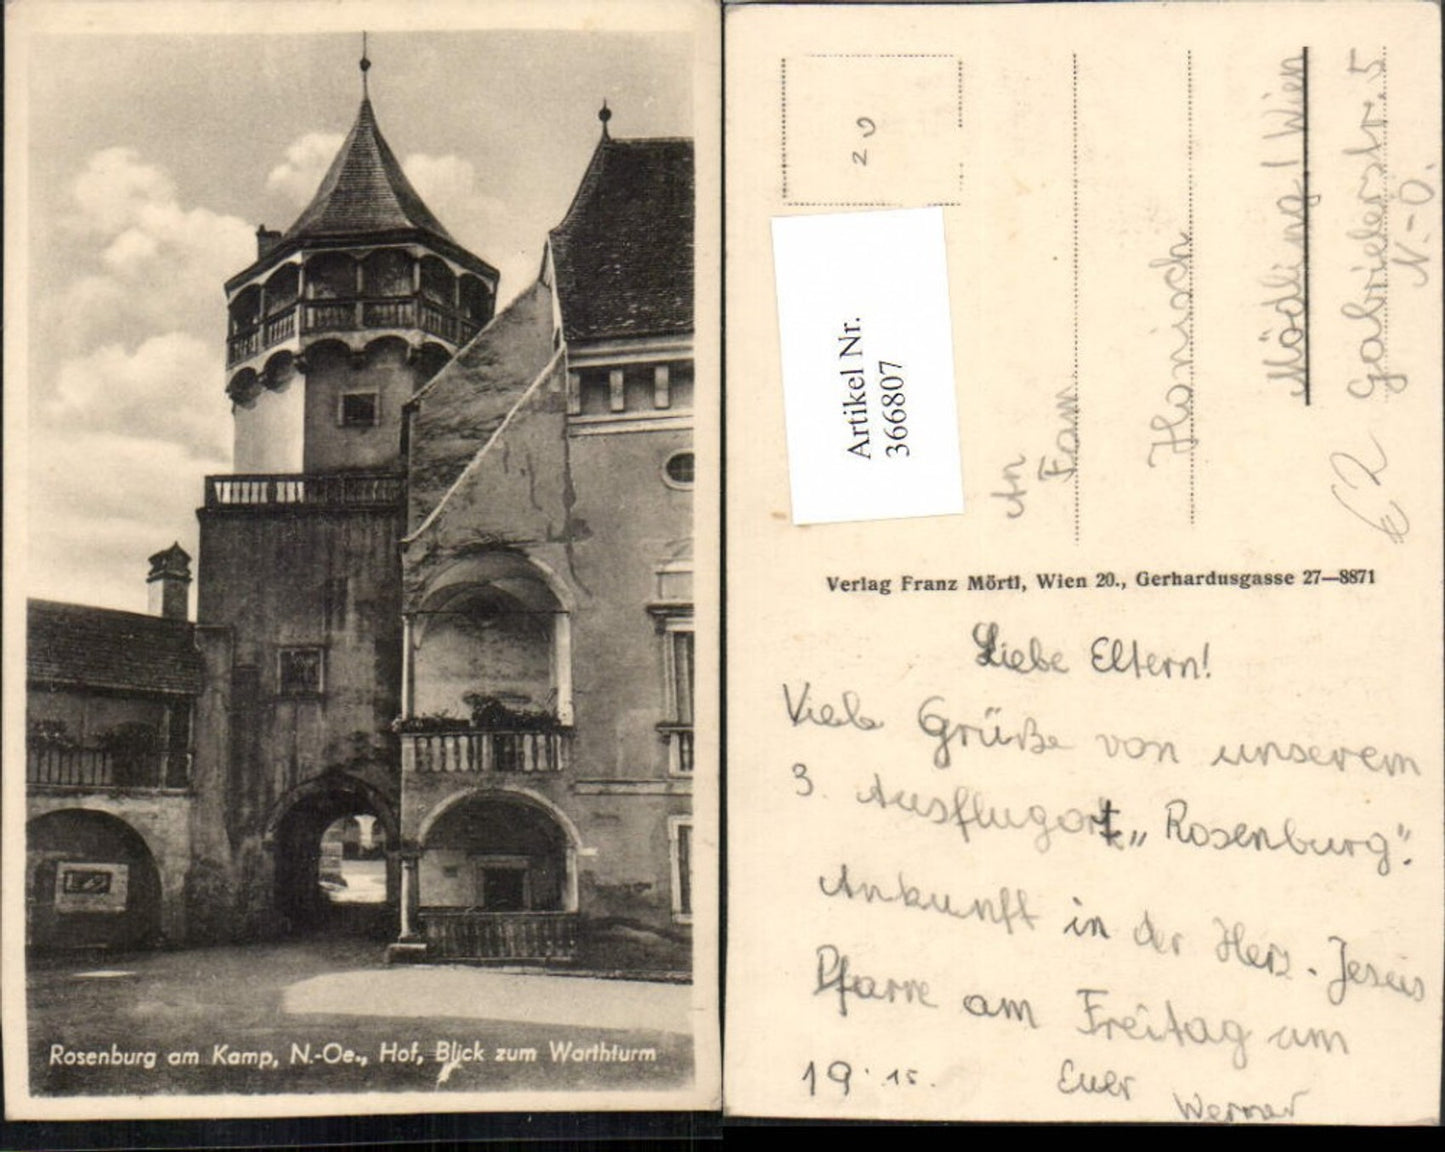 Rosenburg am Kamp, N.-Oe., Hof, Blick zum Wartturm
20
Artikel Nr.
366807
An
Fam.
Hanisch
Mödling / Wien
Gabrielerstr. 5
N.-Ö.
€ 2
Verlag Franz Mörtl, Wien 20., Gerhardusgasse 27—8871
Liebe Eltern!
Viele Grüße von unserem
3. Ausflugort „Rosenburg".
Ankunft in der Herz-Jesus
Pfarre am Freitag um
19.15.
Euer
Werner